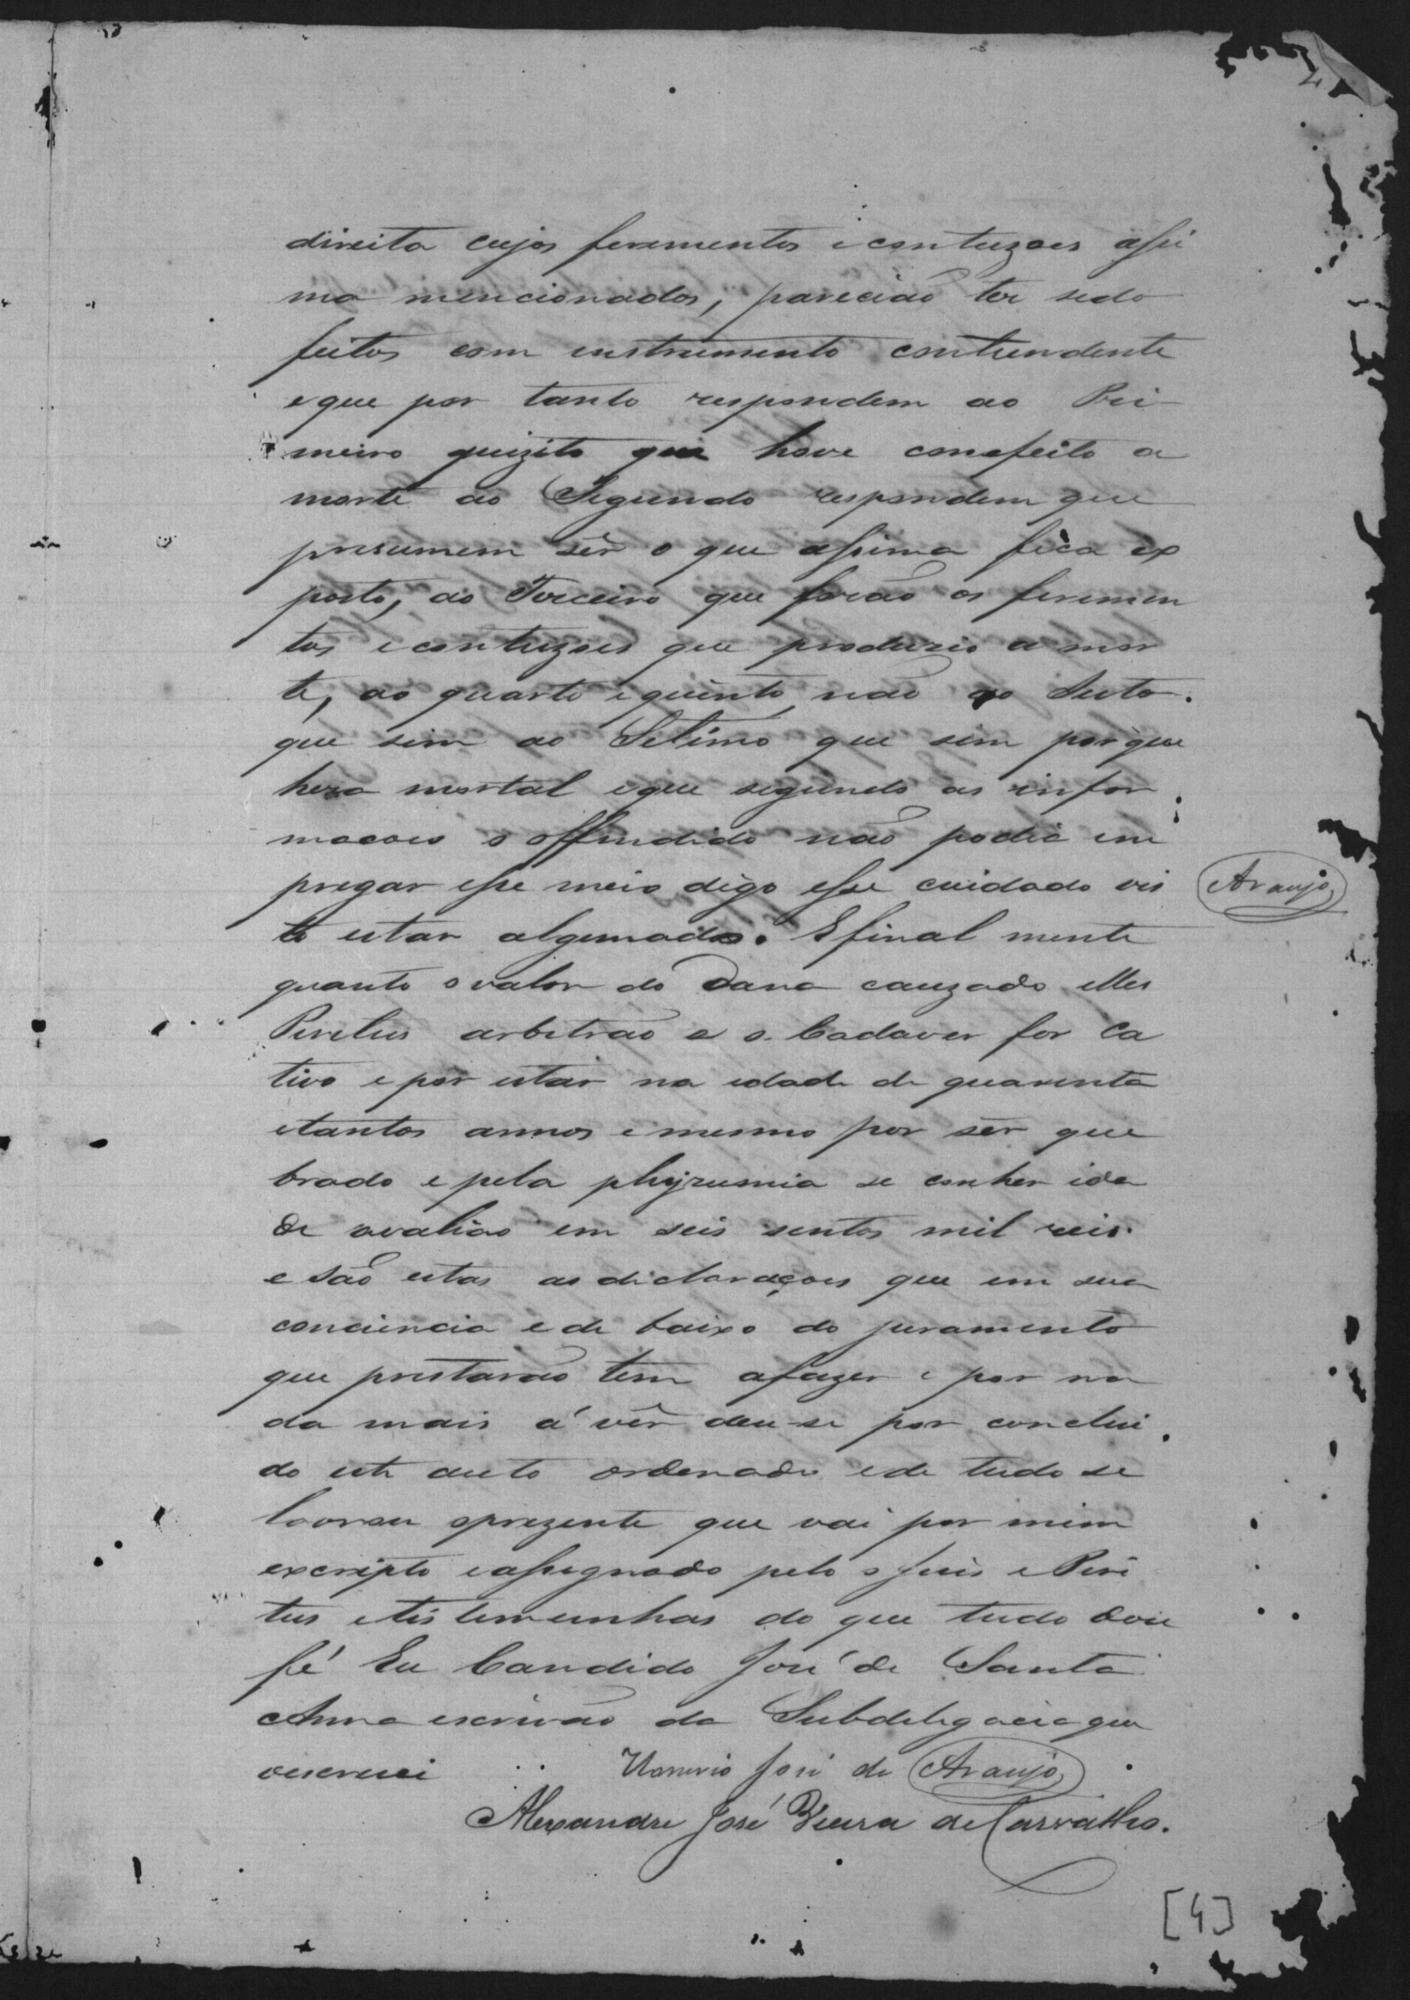 direita cujos ferementos e contuzoes assi
ma mencionados, pareciaõ ter sido
feitos com instrumento contundente
e que por tanto respondem ao Pri
meiro quizito que hove conefeito a
morte ao Segundo respondem que
presumem sêr o que assima fica ex
posto, ao Terceiro que foraõ os feremen
tos e contuzoes que produzio a mor
te, ao quarto e quinto não ao Sesto.
que sim ao Setimo que sim porque
hera mortal e que segundo as infor
macoes o offendido não podia em
pregar esse meio digo esse cuidado vis
Araujo
to estar algemado. E final mente
quanto o valor do Dano cauzado elles
Peritus arbitraõ e o Cadaver for Ca
tivo e por estar na edade de quarenta
e tantos annos e mesmo por sêr que
brado e pela phyzumia se conher ida
de avaliaõ em seis sentos mil reis.
e são estas as diclaraçoes que em sua
conciencia e de baixo do juramento
que prestaraõ tem afazer e por na
da mais á vêr deu-se por conclui
do este auto ordenado e de tudo se
lavrou oprezente que vai por mim
excripto e assegnado pelo o Juis e Peri
tus e tistemunhas do que tudo dou
fé Eu Candido José de Santa
Anna escrivaõ da Subdelegacia que
oescrevi
Honorio José de Araujo
Alexandre José Vieira de Carvalho.
[4]